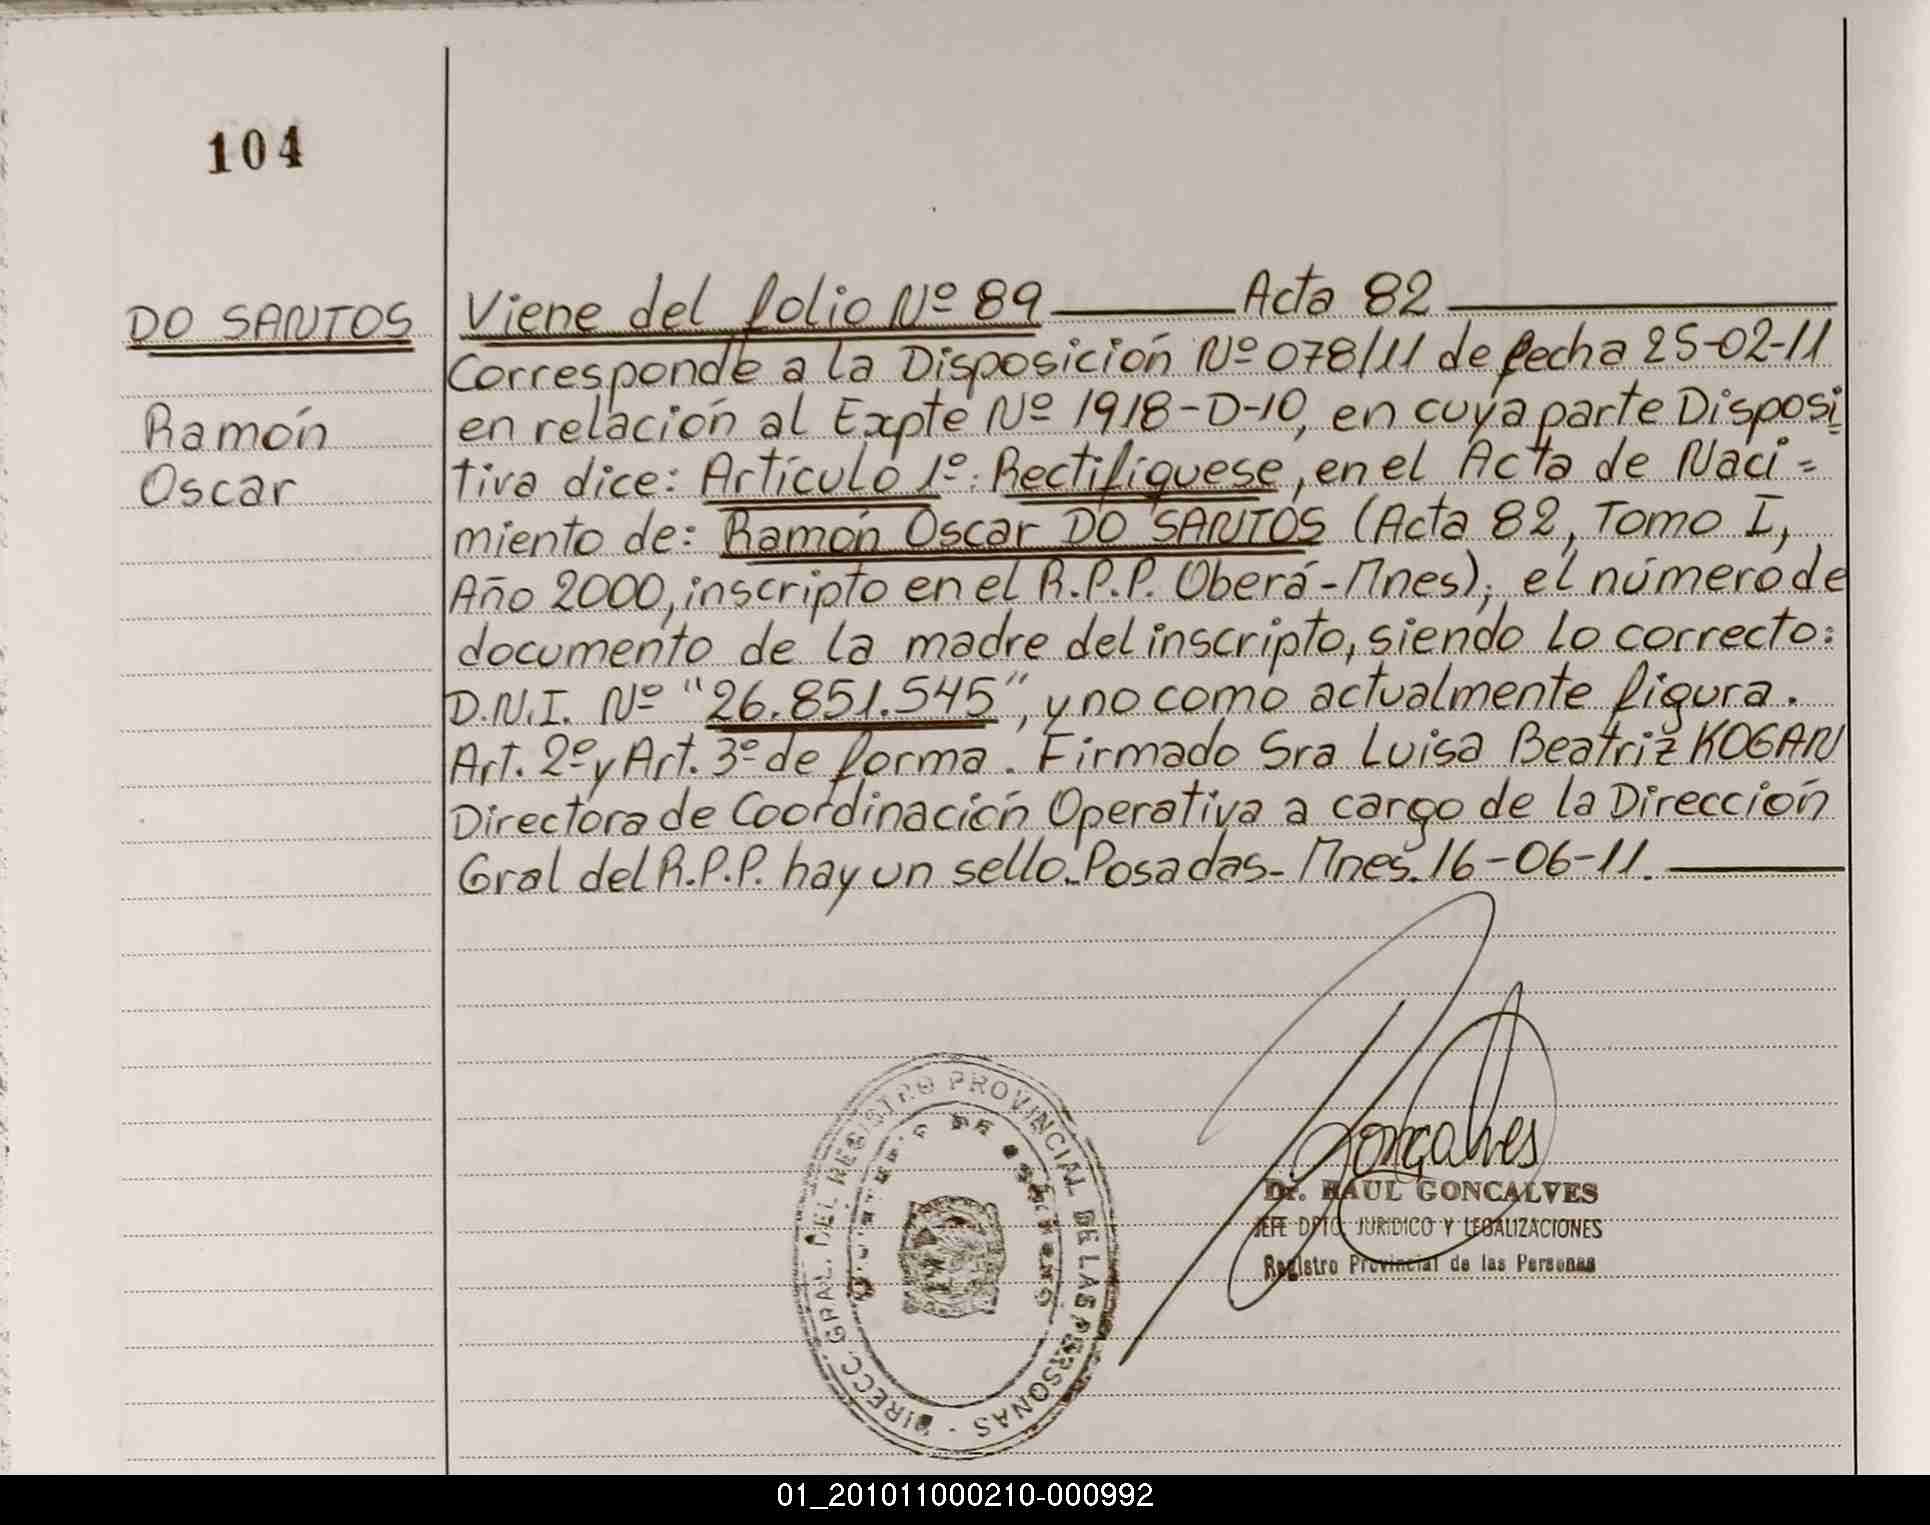 104
DO SANTOS
Ramón
Oscar
Viene del folio Nº 89 ——— Acta 82 ———
Corresponde a la Disposición Nº 078/11 de fecha 25-02-11
en relación al Expte Nº 1918-D-10, en cuya parte Disposi=
tiva dice: Artículo 1º: Rectifíquese, en el Acta de Naci=
miento de: Ramón Oscar DO SANTOS (Acta 82, Tomo I,
Año 2000, inscripto en el R.P.P. Oberá-Mnes); el número de
documento de la madre del inscripto, siendo lo correcto:
D.N.I. Nº "26.851.545", y no como actualmente figura.
Art. 2º y Art. 3º de forma. Firmado Sra Luisa Beatriz KOGAN
Directora de Coordinación Operativa a cargo de la Dirección
Gral del R.P.P. hay un sello. Posadas- Mnes. 16-06-11. ———
DIRECC. GRAL. DEL REGISTRO PROVINCIAL DE LAS PERSONAS
Gonçalves
Dr. RAUL GONCALVES
JEFE DPTO. JURIDICO Y LEGALIZACIONES
Registro Provincial de las Personas
01_201011000210-000992